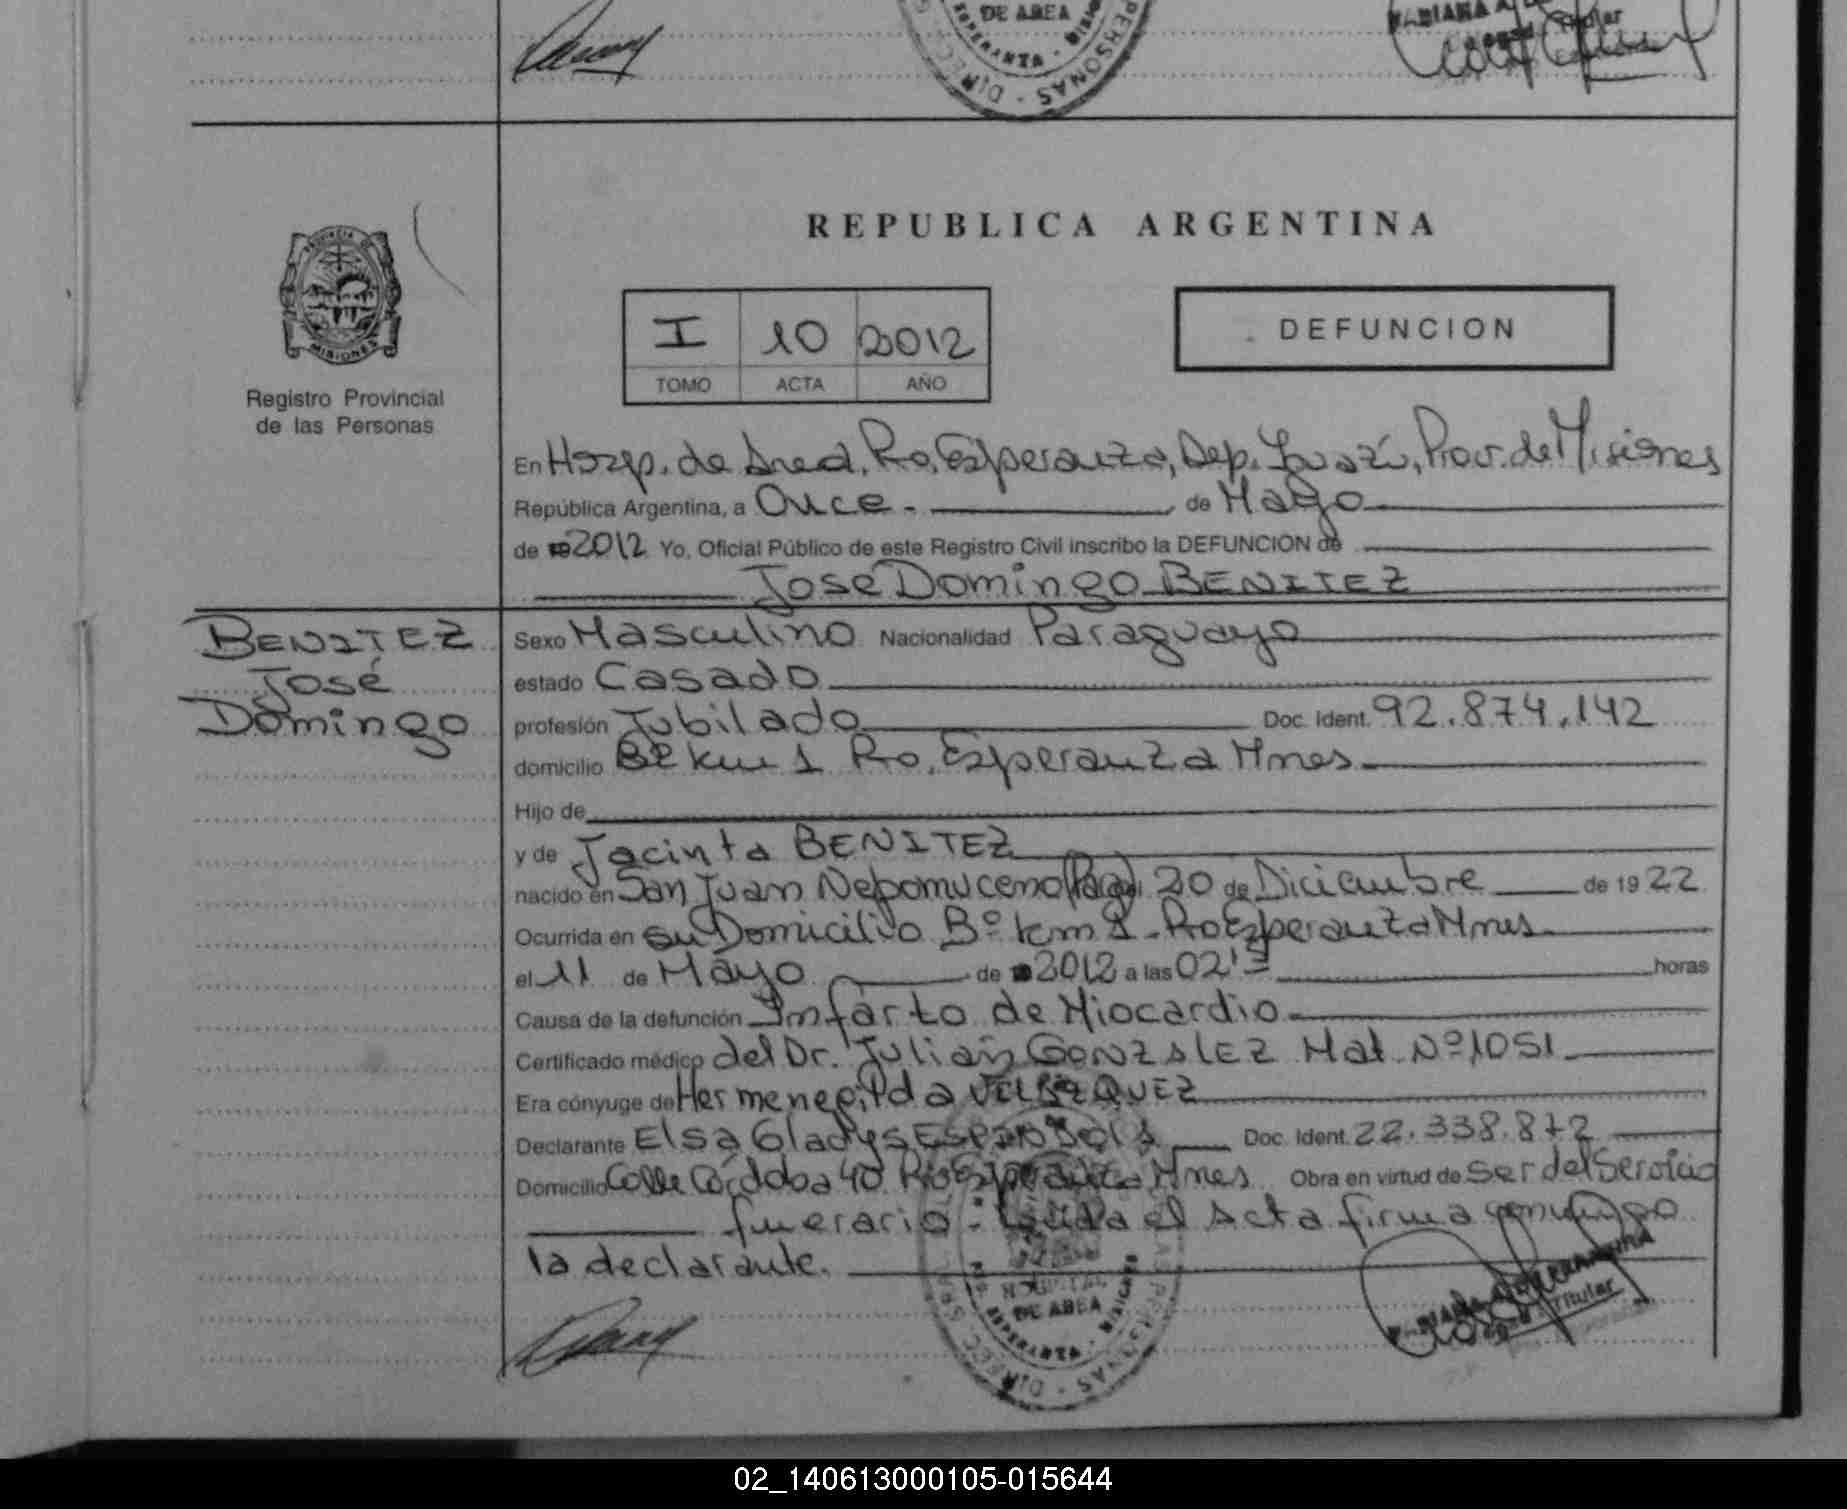 DE AREA
ESPERANZA - MISIONES
PERSONAS - DIREC
REPUBLICA ARGENTINA
PROVINCIA DE
MISIONES
Registro Provincial
de las Personas
I 10 2012
TOMO ACTA AÑO
DEFUNCION
En Hosp. de Area, Pto. Esperanza, Dep. Iguazú, Prov. de Misiones
República Argentina, a Once.- de Mayo
de 2012 Yo, Oficial Público de este Registro Civil inscribo la DEFUNCION de
Jose Domingo BENITEZ
BENITEZ
José
Domingo
Sexo Masculino Nacionalidad Paraguayo
estado Casado
profesión Jubilado Doc. Ident. 92.874.142
domicilio Bº km 1 Pto. Esperanza Mnes.
Hijo de
y de Jacinta BENITEZ
nacido en San Juan Nepomuceno (Pag) el 20 de Diciembre de 1922
Ocurrida en su Domicilio Bº km 1 - Pto Esperanza Mnes.
el 11 de Mayo de 2012 a las 02 horas
Causa de la defunción Infarto de Miocardio
Certificado médico del Dr. Julian GONZALEZ Mat. Nº 1051
Era cónyuge de Hermenegilda VELAZQUEZ
Declarante Elsa Gladys Doc. Ident. 22.338.872
Domicilio Calle Córdoba 40 Pto Esperanza Mnes. Obra en virtud de ser del Servicio
funerario.- Leida el Acta firma conmigo
la declarante.
HOSPITAL
DE AREA
ESPERANZA - MISIONES
PERSONAS - DIREC
Titular
02_140613000105-015644